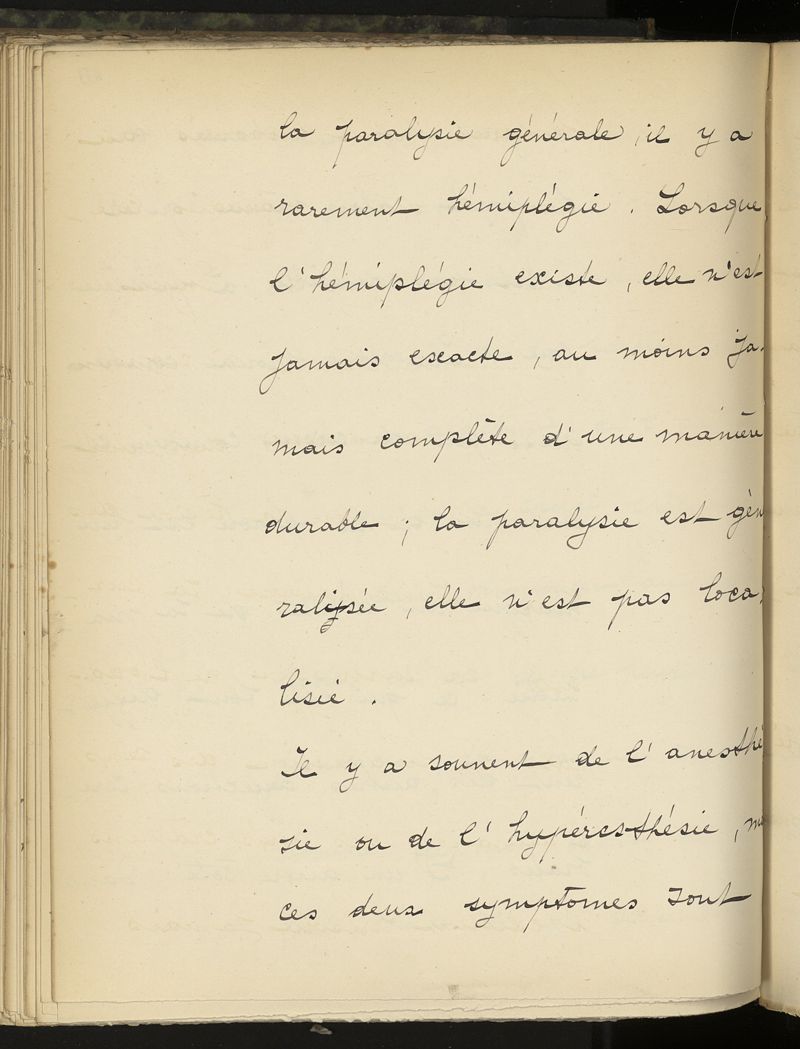 la paralysie générale, il y a
rarement hémiplégie. Lorsque
l'hémiplégie existe, elle n'est
jamais exacte, au moins ja-
mais complète d'une manière
durable ; la paralysie est gén
ralysée, elle n'est pas loca
lisée.
Il y a souvent de l'anesthé
sie ou de l'hypéresthésie, m
ces deux symptomes sont